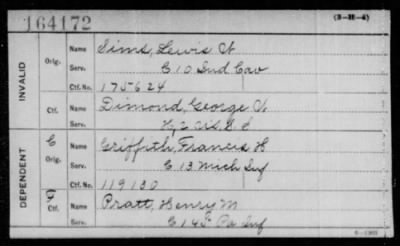 164172
(3-21-4)
INVALID
Orig. Name Sims, Lewis W
Serv. E 10 Ind Cav
Ctf. No. 175624
Ctf. Name Dimond, George W.
Serv.
DEPENDENT
C Orig. Name Griffith, Francis H
Serv. E 13 Mich Inf
Ctf. No. 119130
F Ctf. Name Pratt, Henry M
Serv. E 145 Pa Inf